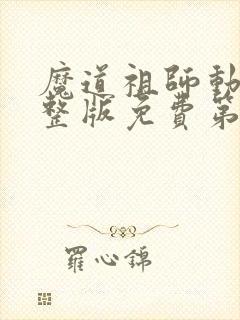 魔道祖師動
整版免費第
羅心錦